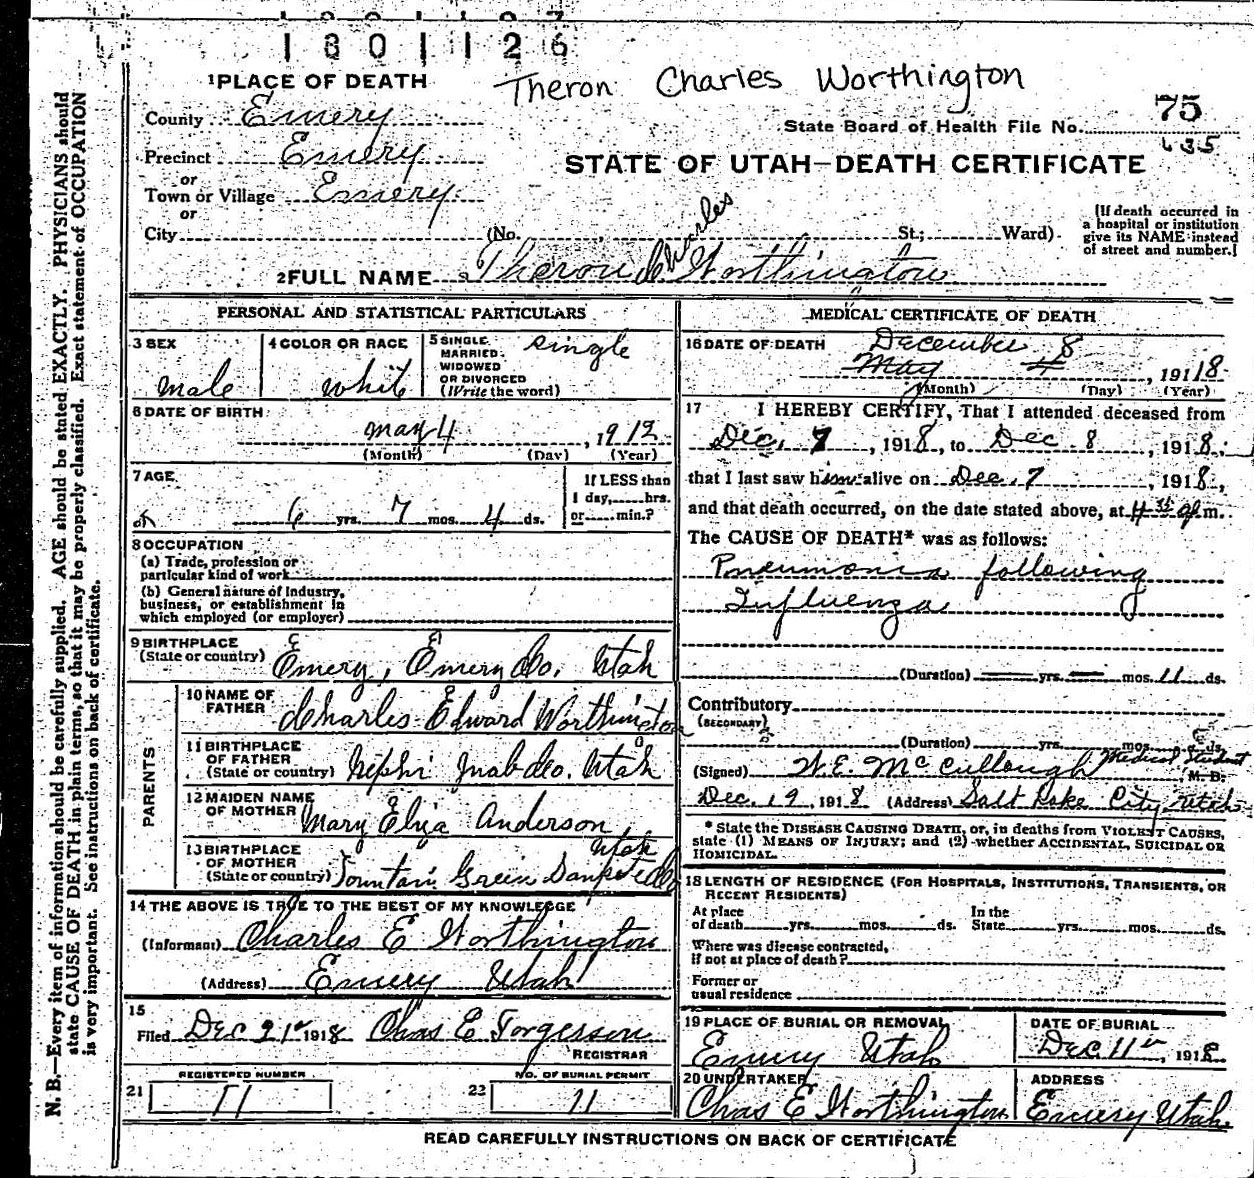 1801126
Theron Charles Worthington
1 PLACE OF DEATH
County Emery
Precinct Emery
or
Town or Village Emery
or
City (No. St.; Ward)
75
State Board of Health File No.
635
STATE OF UTAH—DEATH CERTIFICATE
[If death occurred in
a hospital or institution
give its NAME instead
of street and number.]
Charles
2 FULL NAME Theron C Worthington
PERSONAL AND STATISTICAL PARTICULARS
3 SEX
male
4 COLOR OR RACE
white
5 SINGLE
MARRIED
WIDOWED
OR DIVORCED
(Write the word)
single
6 DATE OF BIRTH
May 4, 1912
(Month) (Day) (Year)
7 AGE
6 yrs. 7 mos. 4 ds.
If LESS than
1 day, hrs.
or min.?
8 OCCUPATION
(a) Trade, profession or
particular kind of work
(b) General nature of Industry,
business, or establishment in
which employed (or employer)
9 BIRTHPLACE
(State or country) Emery, Emery Co. Utah
PARENTS
10 NAME OF
FATHER Charles Edward Worthington
11 BIRTHPLACE
OF FATHER
(State or country) Nephi Juab Co. Utah
12 MAIDEN NAME
OF MOTHER Mary Eliza Anderson
13 BIRTHPLACE
OF MOTHER Utah
(State or country) Fountain Green Sanpete Co
14 THE ABOVE IS TRUE TO THE BEST OF MY KNOWLEDGE
(Informant) Charles E Worthington
(Address) Emery Utah
15
Filed Dec 21st 1918 Chas E Torgerson
REGISTRAR
REGISTERED NUMBER
21 11
NO. OF BURIAL PERMIT
22 11
MEDICAL CERTIFICATE OF DEATH
16 DATE OF DEATH December 8
May 4, 19118
(Month) (Day) (Year)
17 I HEREBY CERTIFY, That I attended deceased from
Dec. 7, 1918, to Dec 8, 1918,
that I last saw him alive on Dec. 7, 1918,
and that death occurred, on the date stated above, at m.
The CAUSE OF DEATH* was as follows:
Pneumonia following
Influenza
(Duration) yrs. mos. 11 ds.
Contributory
(SECONDARY)
(Duration) yrs. mos. ds.
(Signed) W. E. McCullough Medical Student M. D.
Dec. 19, 1918 (Address) Salt Lake City, Utah
* State the DISEASE CAUSING DEATH, or, in deaths from VIOLENT CAUSES,
state (1) MEANS OF INJURY; and (2) whether ACCIDENTAL, SUICIDAL OR
HOMICIDAL.
18 LENGTH OF RESIDENCE (FOR HOSPITALS, INSTITUTIONS, TRANSIENTS, OR
RECENT RESIDENTS)
At place In the
of death yrs. mos. ds. State yrs. mos. ds.
Where was disease contracted,
if not at place of death?
Former or
usual residence
19 PLACE OF BURIAL OR REMOVAL
Emery Utah
DATE OF BURIAL
Dec. 11th, 1918
20 UNDERTAKER
Chas E Worthington
ADDRESS
Emery Utah.
READ CAREFULLY INSTRUCTIONS ON BACK OF CERTIFICATE
N. B.—Every item of information should be carefully supplied. AGE should be stated EXACTLY. PHYSICIANS should
state CAUSE OF DEATH in plain terms, so that it may be properly classified. Exact statement of OCCUPATION
is very important. See instructions on back of certificate.